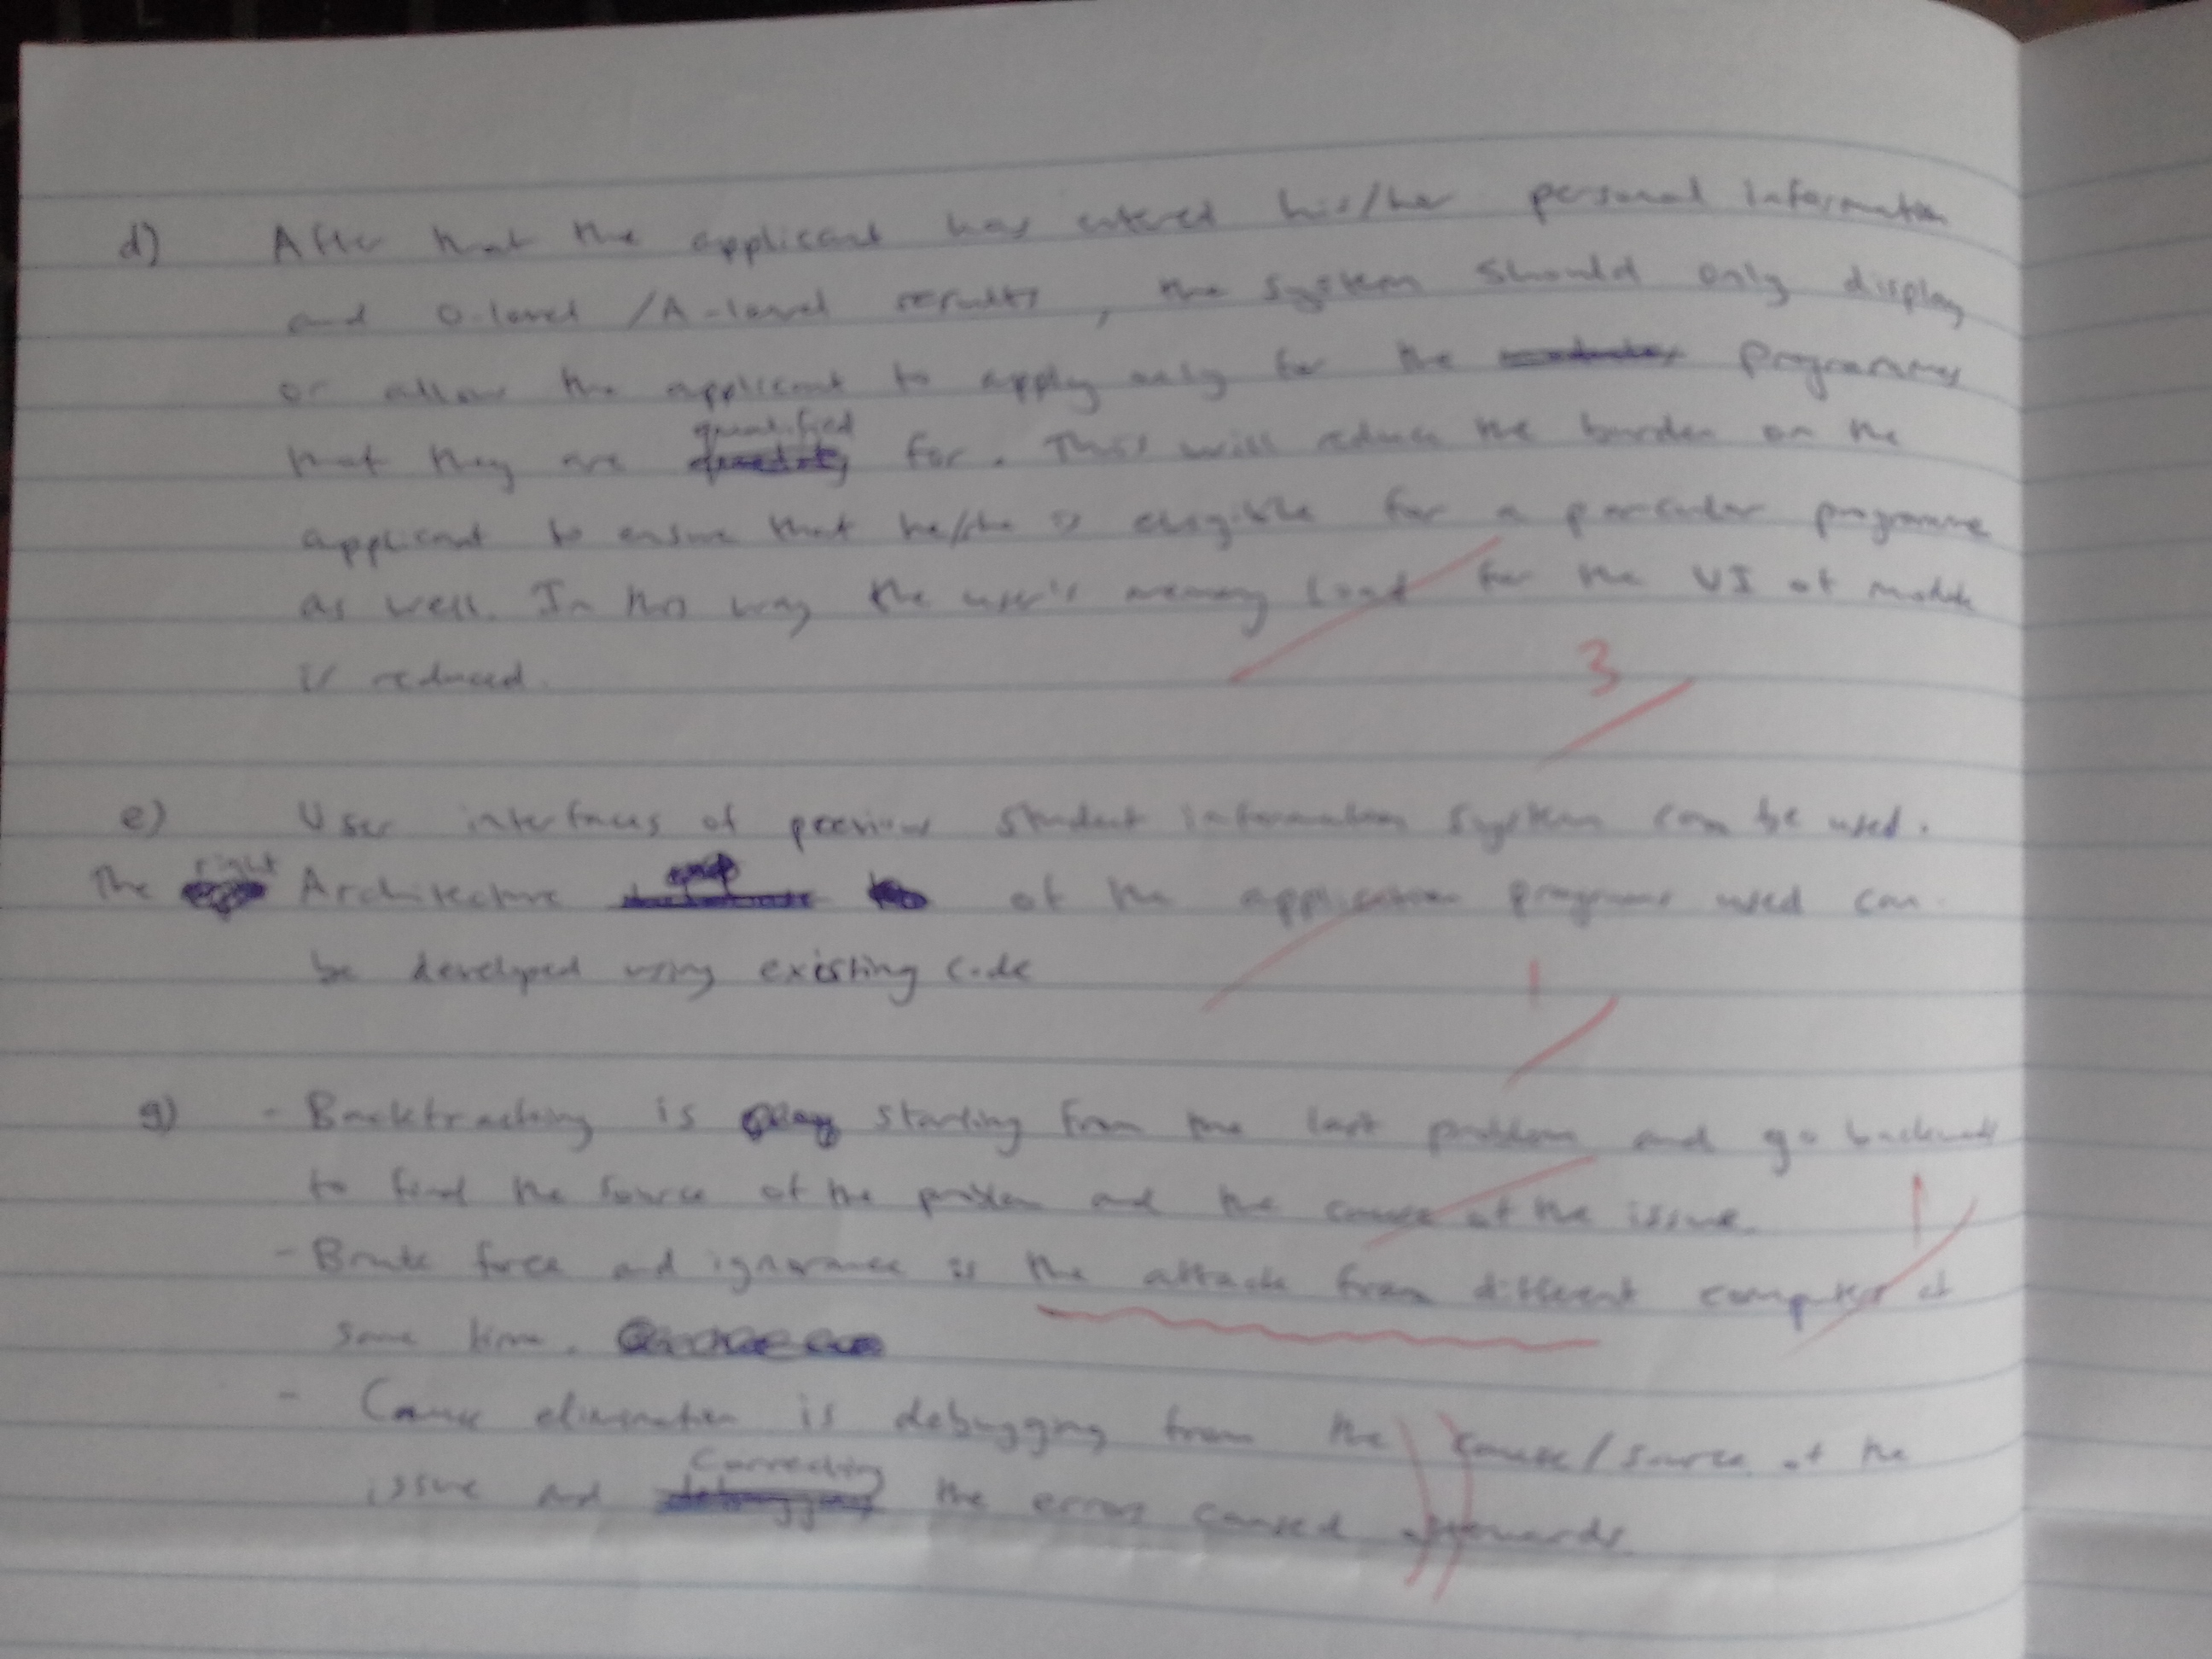 d) After that the applicant has entered his/her personal information
and O-level /A-level results, the system should only display
or allow the applicant to apply only for the programmes
that they are qualified for. This will reduce the burden on the
applicant to ensure that he/she is eligible for a particular programme
as well. In this way the user's memory load for the UI of module
is reduced.
3
e) User interfaces of previous student information system can be used.
The right Architecture of the application programs used can
be developed using existing code
1
g) - Backtracking is starting from the last problem and go backwards
to find the source of the problem and the cause of the issue.
1
- Brute force and ignorance is the attack from different computers at
same time.
- Cause elimination is debugging from the cause/source of the
issue and correcting the errors caused afterwards.